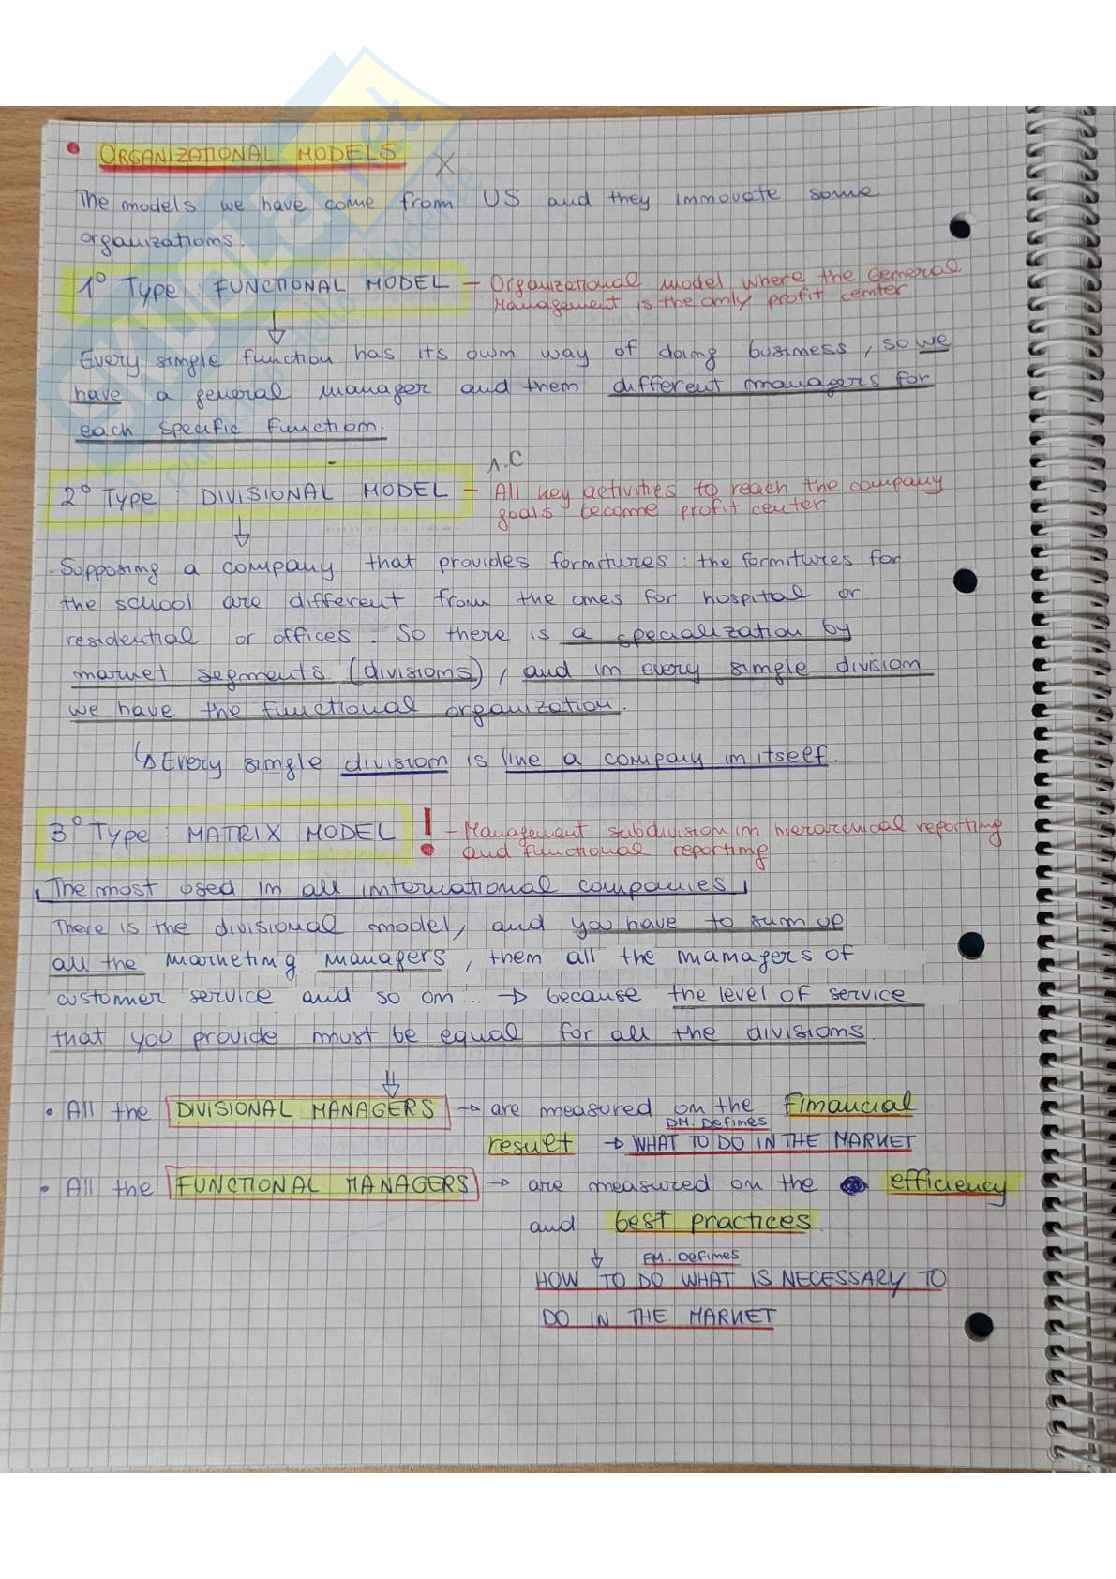 • ORGANIZATIONAL MODELS X
The models we have come from US and they innovate some
organizations.
1° Type: FUNCTIONAL MODEL - Organizational model where the General
Management is the only profit center
Every single function has its own way of doing business, so we
have a general manager and then different managers for
each specific function.
1.C
2° Type: DIVISIONAL MODEL - All key activities to reach the company
goals become profit center
Supposing a company that provides fornitures: the fornitures for
the school are different from the ones for hospital or
residential or offices. So there is a specialization by
market segments (divisions), and in every single division
we have the functional organization.
↳ Every single division is like a company in itself.
3° Type: MATRIX MODEL ! - Management subdivision in hierarchical reporting
and functional reporting
The most used in all international companies
There is the divisional model, and you have to sum up
all the marketing managers, then all the managers of
customer service and so on... → because the level of service
that you provide must be equal for all the divisions.
• All the DIVISIONAL MANAGERS → are measured on the financial
DM. Defines
result → WHAT TO DO IN THE MARKET
• All the FUNCTIONAL MANAGERS → are measured on the efficiency
and best practices.
↓ FM. Defines
HOW TO DO WHAT IS NECESSARY TO
DO IN THE MARKET